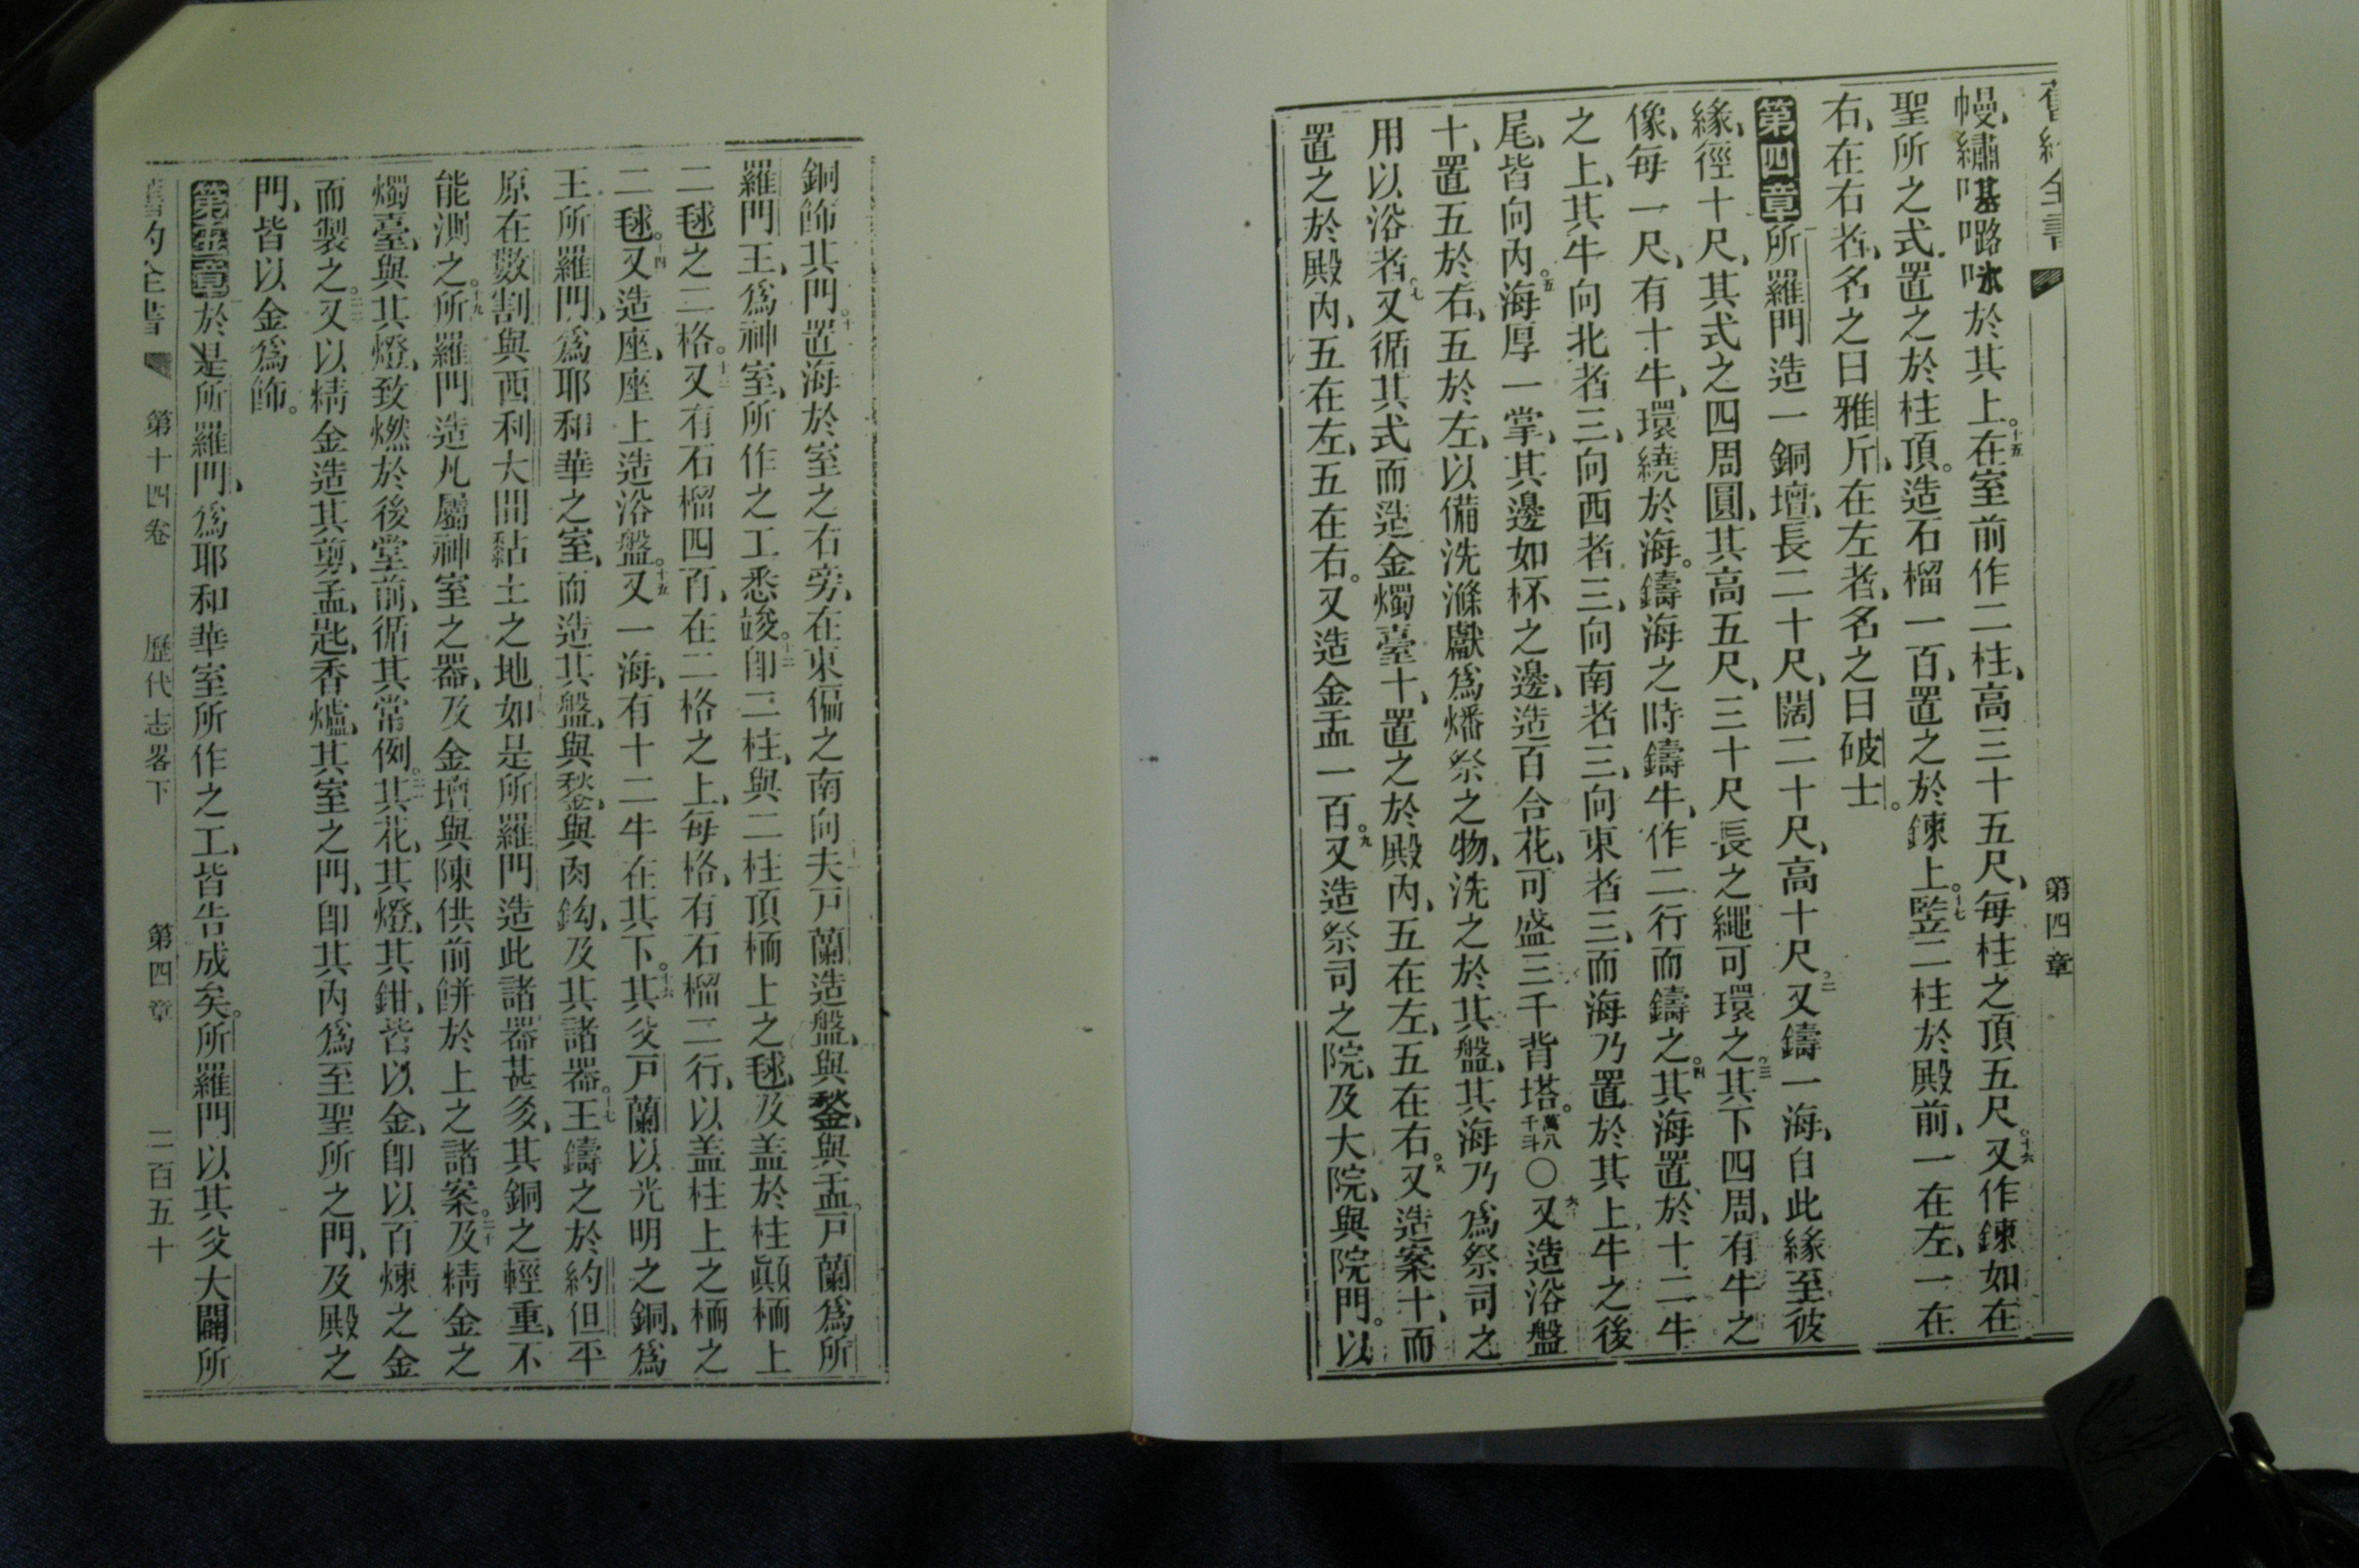 舊約全書 第四章
幔、繡𠸄嚕咏於其上。十五在室前作二柱、高三十五尺、每柱之頂五尺。十六又作鍊如在
聖所之式、置之於柱頂。造石榴一百、置之於鍊上。十七竪二柱於殿前、一在左、一在
右、在右者、名之曰雅斤、在左者、名之曰破士。
第四章 所羅門造一銅壇、長二十尺、闊二十尺、高十尺。二又鑄一海、自此緣至彼
緣、徑十尺、其式之四周圓、其高五尺、三十尺長之繩可環之。三其下四周、有牛之
像、每一尺、有十牛、環繞於海。鑄海之時鑄牛、作二行而鑄之。四其海置於十二牛
之上、其牛向北者三、向西者三、向南者三、向東者三、而海乃置於其上、牛之後
尾、皆向內。五海厚一掌、其邊如杯之邊、造百合花、可盛三千背塔。萬八千斗〇六又造浴盤
十、置五於右、五於左、以備洗滌獻爲燔祭之物、洗之於其盤、其海乃爲祭司之
用以浴者。七又循其式而造金燭臺十、置之於殿內、五在左、五在右。八又造案十、而
置之於殿內、五在左、五在右。又造金盂一百。九又造祭司之院、及大院、與院門。以
銅飾其門。十置海於室之右旁、在東偏之南向夫戸蘭造盤、與鍫、與盂。戸蘭爲所
羅門王、爲神室、所作之工悉竣。十二卽二柱、與二柱頂桶上之毬、及盖於柱顚桶上
二毬之二格。十三又有石榴四百、在二格之上、每格、有石榴二行、以盖柱上之桶之
二毬。十四又造座、座上造浴盤。十五又一海、有十二牛在其下。十六其父戸蘭以光明之銅、爲
王所羅門、爲耶和華之室、而造其盤、與鍫、與肉鈎、及其諸器。十七王鑄之於約但平
原在數割與西利大間粘土之地如是所羅門造此諸器甚多、其銅之輕重、不
能測之。十九所羅門造凡屬神室之器、及金壇與陳供前餅於上之諸案。二十及精金之
燭臺、與其燈、致燃於後堂前、循其常例。其花、其燈、其鉗、皆以金、卽以百煉之金
而製之。二二又以精金造其剪、盂、匙、香爐、其室之門、卽其內爲至聖所之門、及殿之
門、皆以金爲飾。
第五章 於是所羅門、爲耶和華室所作之工、皆告成矣。所羅門以其父大闢所
舊約全書 第十四卷 歷代志畧下 第四章 二百五十